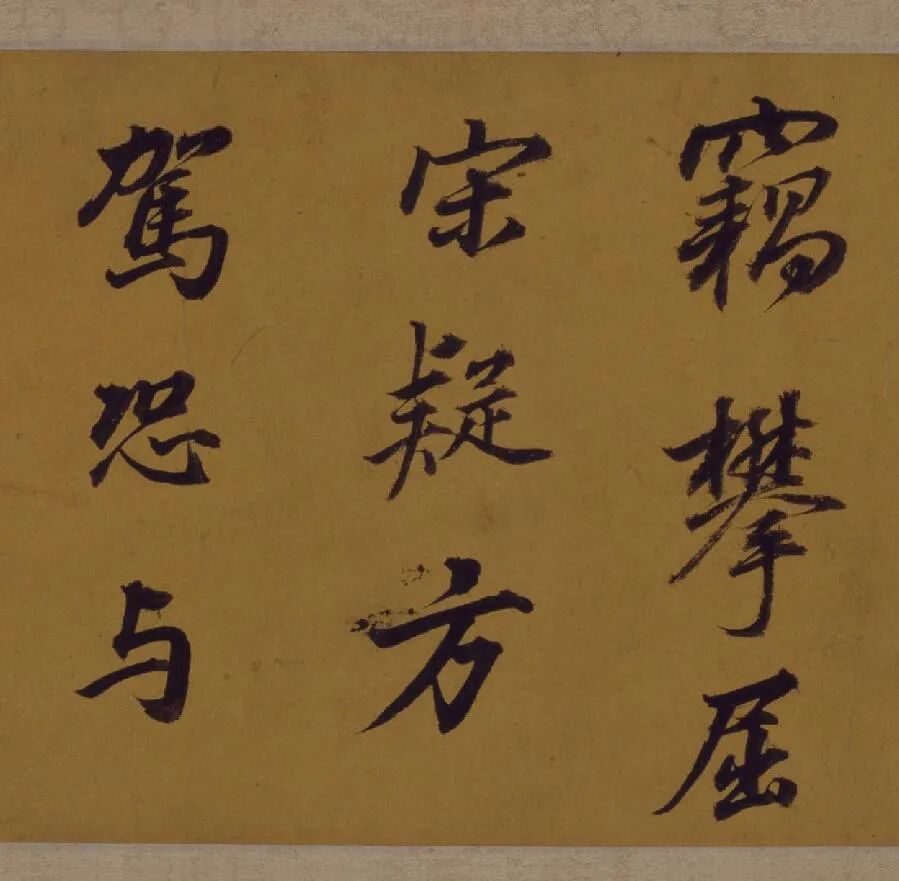 竊攀屈
宋疑方
駕恐与